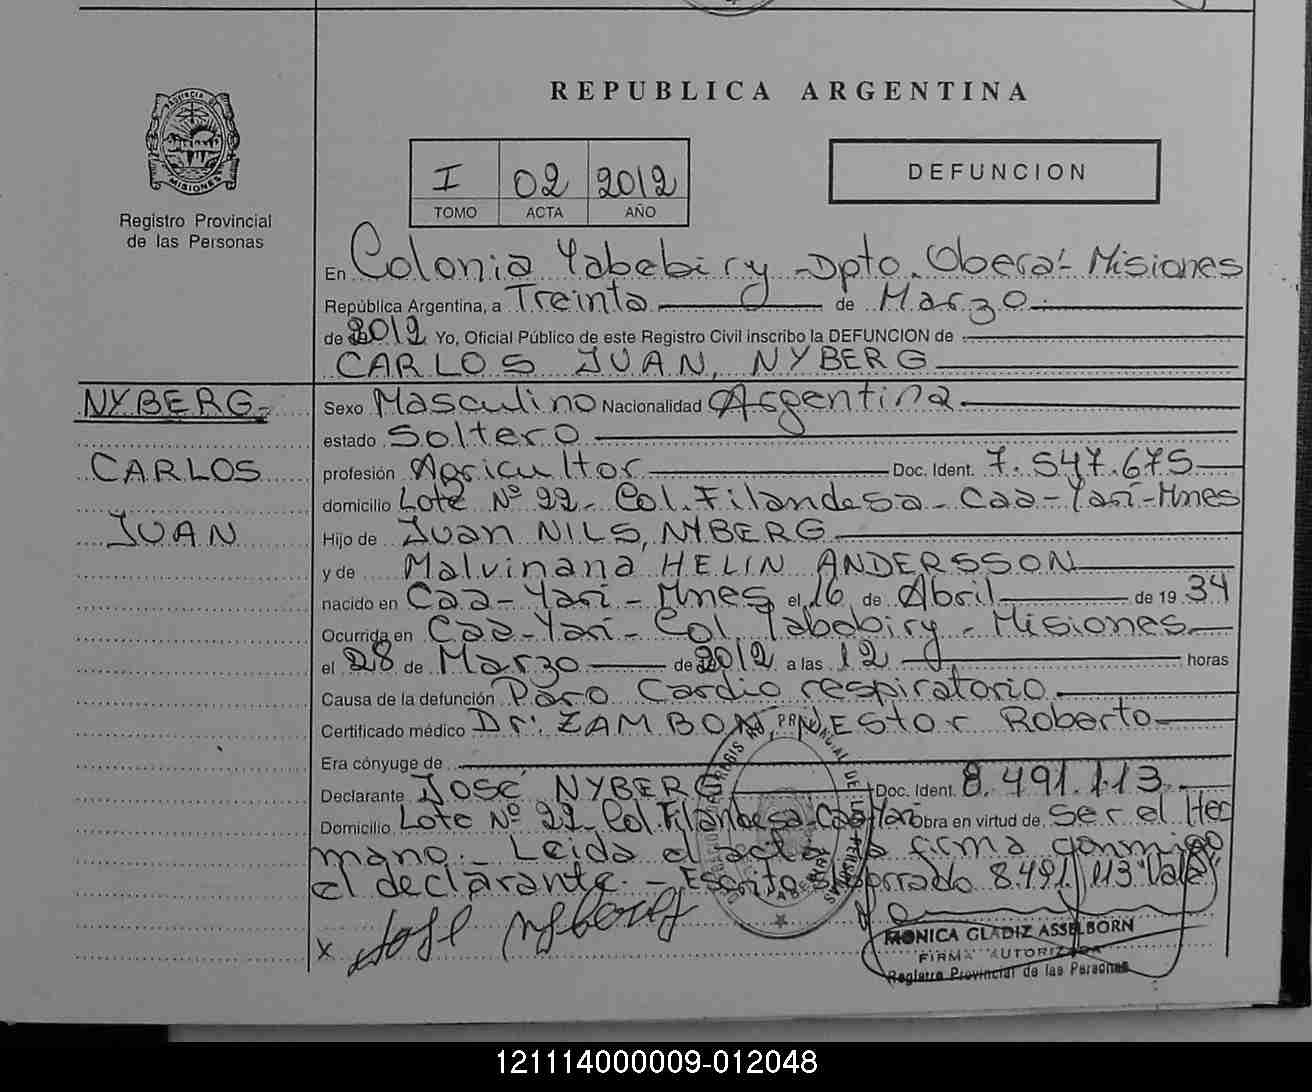 REPUBLICA ARGENTINA
PROVINCIA DE MISIONES
Registro Provincial
de las Personas
I 02 2012
TOMO ACTA AÑO
DEFUNCION
En Colonia Yabebiry - Dpto. Oberá - Misiones
República Argentina, a Treinta de Marzo
de 2012 Yo, Oficial Público de este Registro Civil inscribo la DEFUNCION de
CARLOS JUAN, NYBERG
NYBERG
CARLOS
JUAN
Sexo Masculino Nacionalidad Argentina
estado Soltero
profesión Agricultor Doc. Ident. 7.547.675
domicilio Lote Nº 22 - Col. Filandesa - Caa-Yarí - Mnes
Hijo de Juan NILS, NYBERG
y de Malvinana HELIN ANDERSSON
nacido en Caa-Yarí - Mnes el 16 de Abril de 19 34
Ocurrida en Caa-Yarí - Col. Yabebiry - Misiones
el 28 de Marzo de 2012 a las 12 horas
Causa de la defunción Paro Cardio respiratorio
Certificado médico Dr: ZAMBON, NESTOR Roberto
Era cónyuge de
Declarante José NYBERG Doc. Ident. 8.491.113
Domicilio Lote Nº 22 Col. Filandesa Caa Yarí Obra en virtud de Ser el Her
mano. - Leida el acta la firma conmigo
el declarante. - Escrito s/borrado 8.491.113 "Vale"
x José Nyberg
MONICA GLADIZ ASSELBORN
FIRMA AUTORIZADA
Registro Provincial de las Personas
121114000009-012048